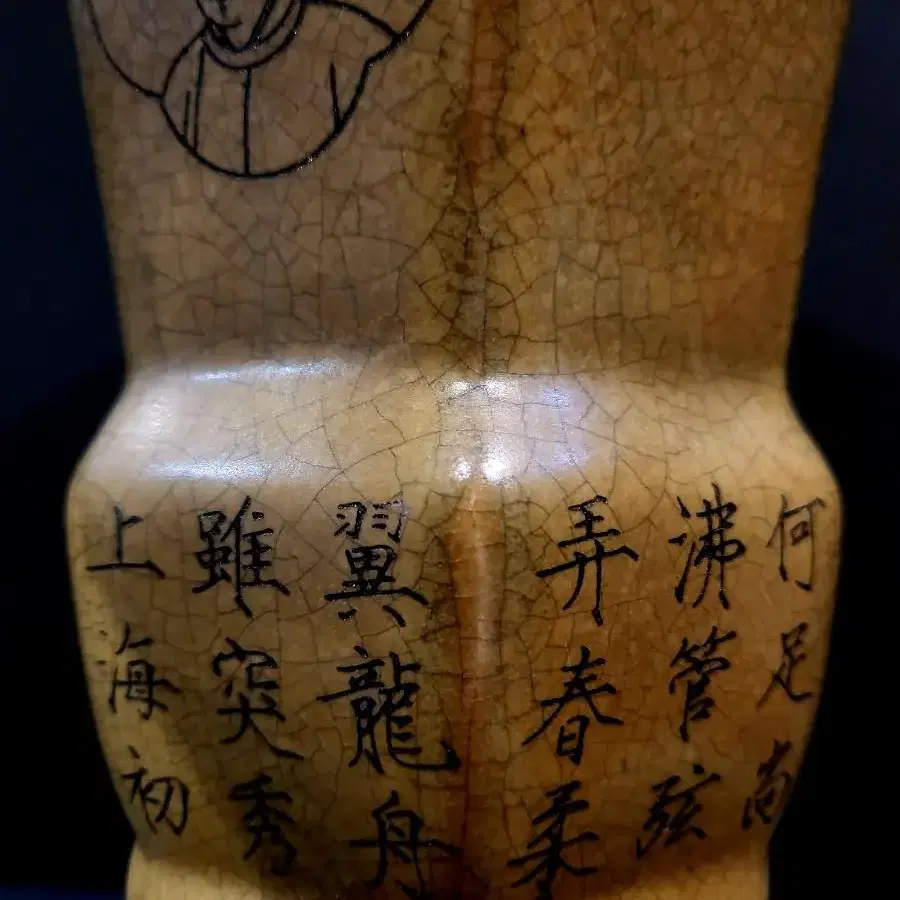 何足尚
沸管弦
弄春柔
翼龍舟
雖突秀
上海初